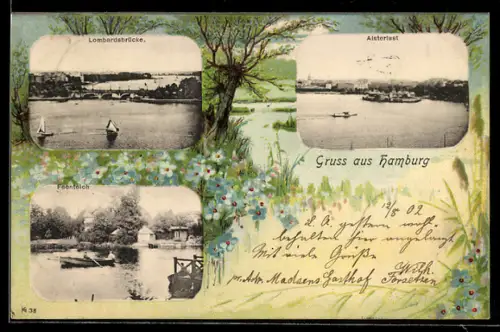 Lombardsbrücke.
Alsterlust
Gruss aus Hamburg
Feenteich
12/8 02
L. A. gestern wohl-
behalten hier angelangt
Mit viele Grüße
Gasthof
№ 38